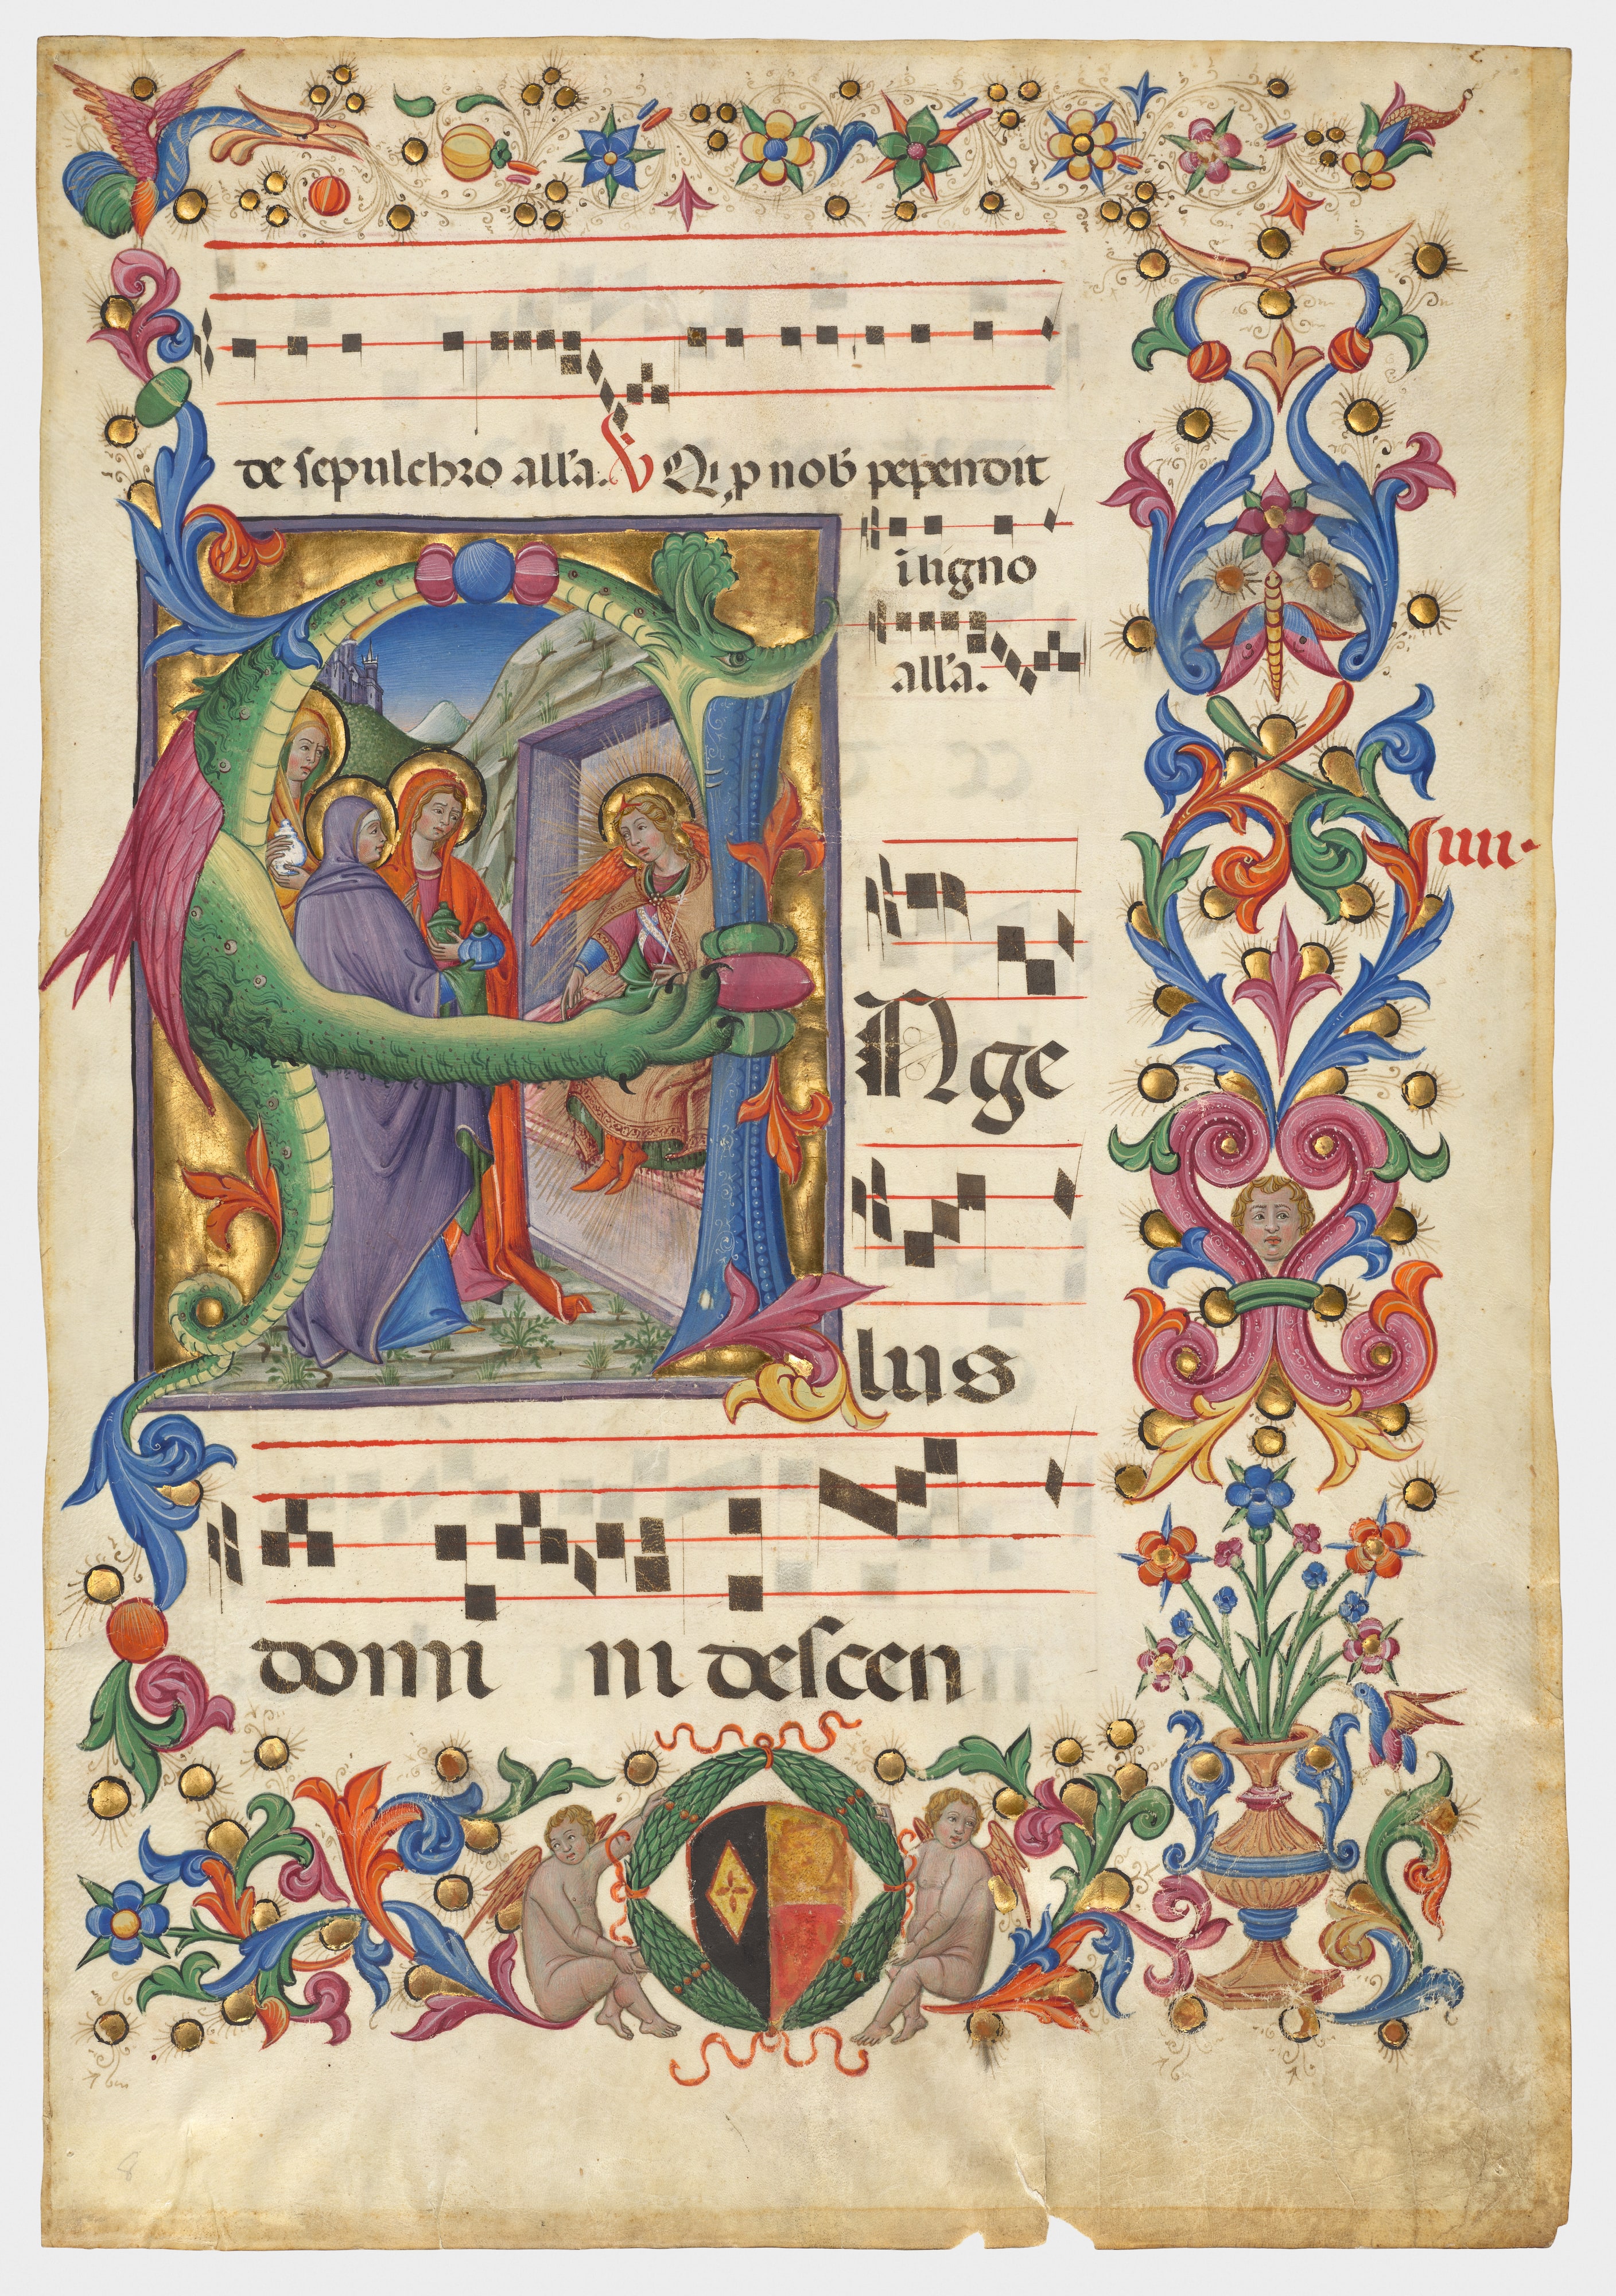 de sepulchro all'a. V Qi p nob pependit
i ligno
all'a.
Nge
IIII.
lus
domi ni descen
8